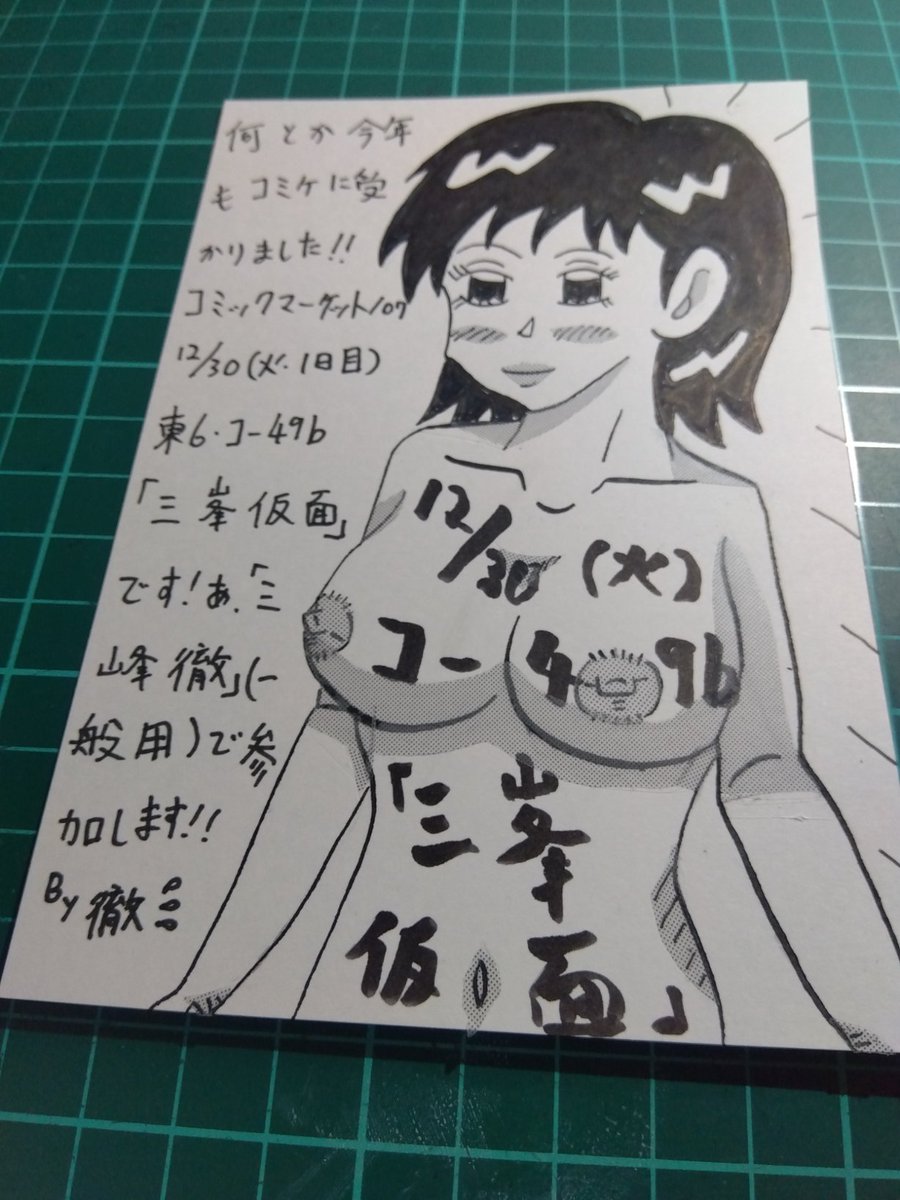 何とか今年
もコミケに受
かりました!!
コミックマーケット107
12/30(火・1日目)
東6・コ-49b
「三峯仮面」
です!あ、「三
峰徹」(一
般用)で参
加します!!
By 徹
12/30(火)
コ-49b
「三峯
仮面」